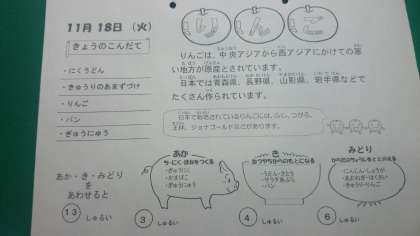 11月 18日 (火)
きょうのこんだて
・にくうどん
・きゅうりのあまずづけ
・りんご
・パン
・ぎゅうにゅう
りんごは、中央アジアから西アジアにかけての寒
い地方が原産とされています。
日本では青森県、長野県、山形県、岩手県などで
たくさん作られています。
日本で栽培されているりんごには、ふじ、つがる、
王林、ジョナゴールドなどがあります。
あか・き・みどり
を
あわせると
13 しゅるい
あか
ち・にく・ほねをつくる
・ぎゅうにく
・かまぼこ
・ぎゅうにゅう
3 しゅるい
き
・うどん・さとう
・サラダあぶら
・パン
4 しゅるい
みどり
・にんじん・しょうが
・きゅうり・りんご
6 しゅるい